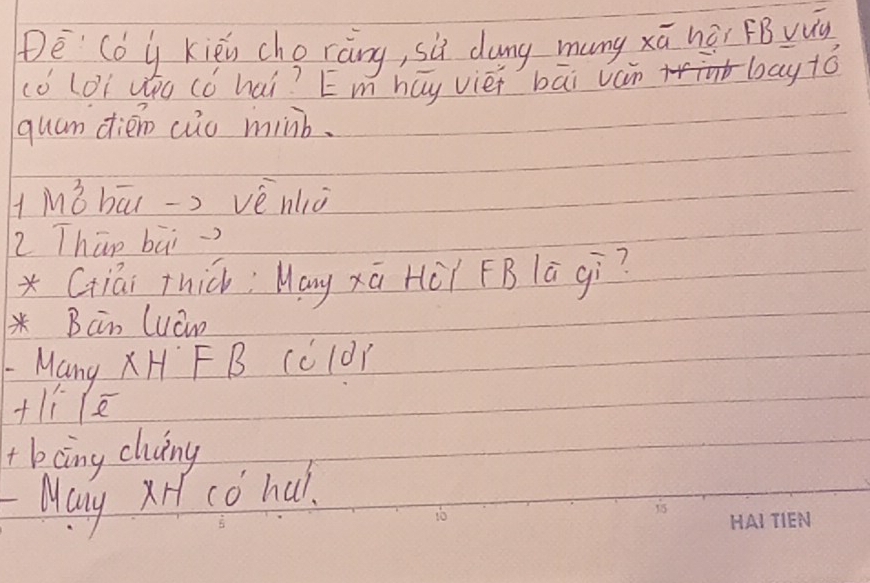 Đề: Có ý kiến cho rằng, sử dụng mạng xã hội FB vừa
có lợi vừa có hại? Em hãy viết bài văn trình bày tỏ
quan điểm của mình.
1 Mở bài -> về nhà
2 Thân bài ->
* Giải thích: Mạng xã Hội FB là gì?
* Bàn luận
- Mạng XH FB có lợi
+ lí lẽ
+ bằng chứng
- Mạng XH có hại.
5 10 15
HAI TIEN